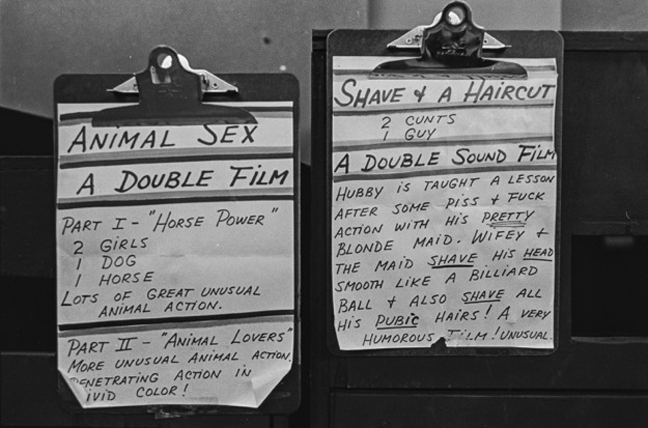 ANIMAL SEX
A DOUBLE FILM
PART I - "HORSE POWER"
2 GIRLS
1 DOG
1 HORSE
LOTS OF GREAT UNUSUAL
ANIMAL ACTION.
PART II - "ANIMAL LOVERS"
MORE UNUSUAL ANIMAL ACTION.
PENETRATING ACTION IN
IVID COLOR!
SHAVE & A HAIRCUT
2 CUNTS
1 GUY
A DOUBLE SOUND FILM
HUBBY IS TAUGHT A LESSON
AFTER SOME PISS & FUCK
ACTION WITH HIS PRETTY
BLONDE MAID. WIFEY &
THE MAID SHAVE HIS HEAD
SMOOTH LIKE A BILLIARD
BALL & ALSO SHAVE ALL
HIS PUBIC HAIRS! A VERY
HUMOROUS FILM! UNUSUAL.